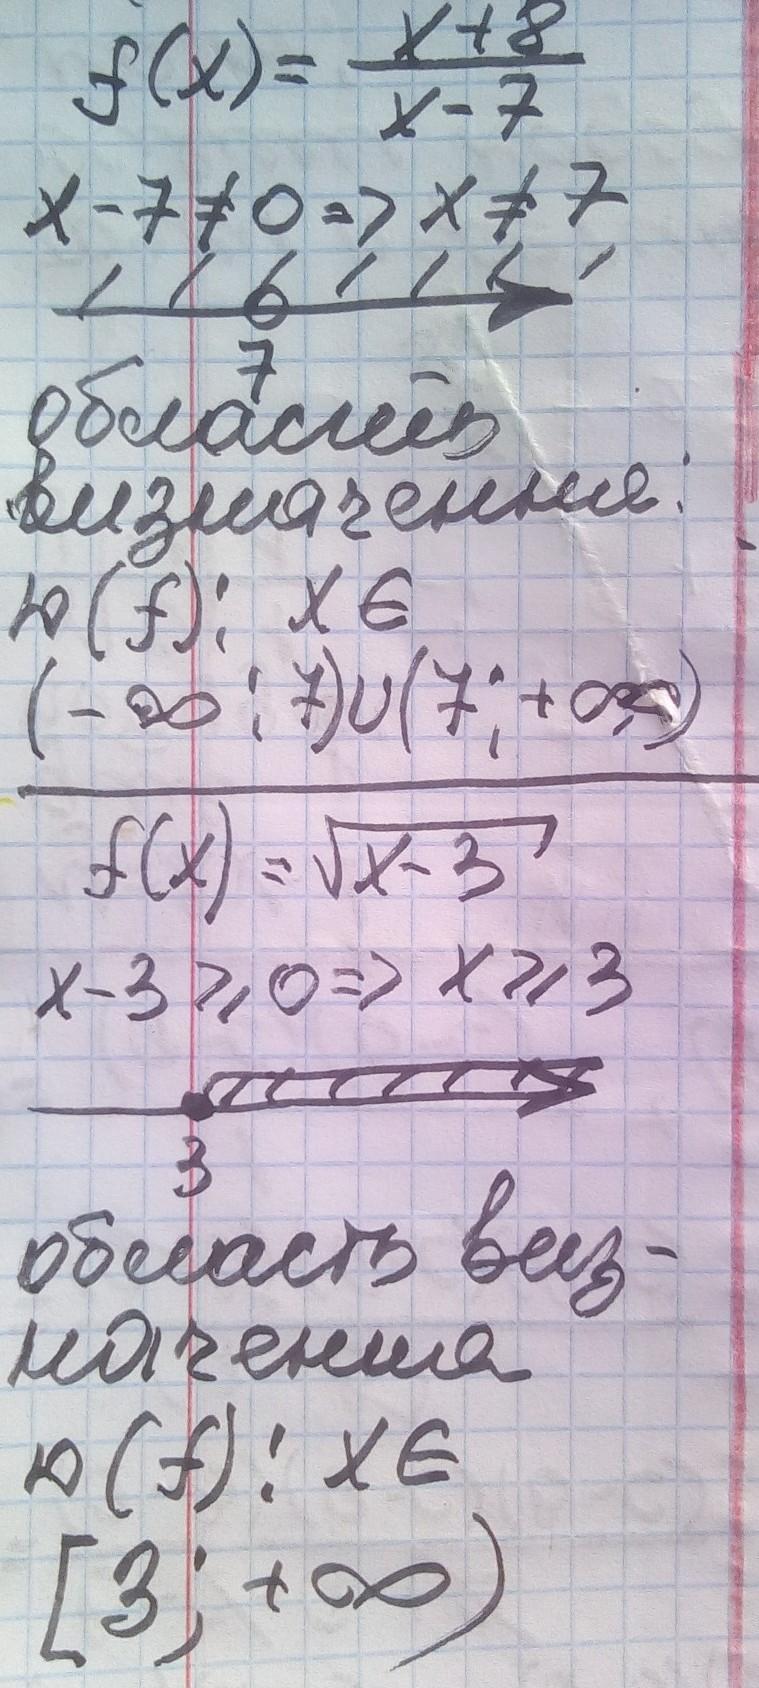 f(x) = x+8 / x-7
x - 7 ≠ 0 => x ≠ 7
7
область
визначення:
D(f): x ∈
(-∞; 7)∪(7; +∞)
f(x) = √x-3
x-3 ⩾ 0 => x ⩾ 3
3
область виз-
начення
D(f): x ∈
[3; +∞)